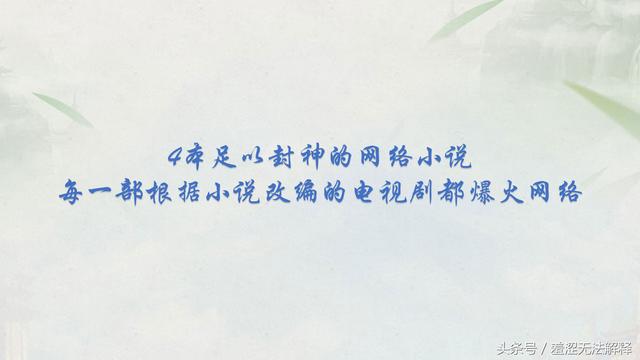 4本足以封神的网络小说
每一部根据小说改编的电视剧都爆火网络
头条号/羞涩无法解释